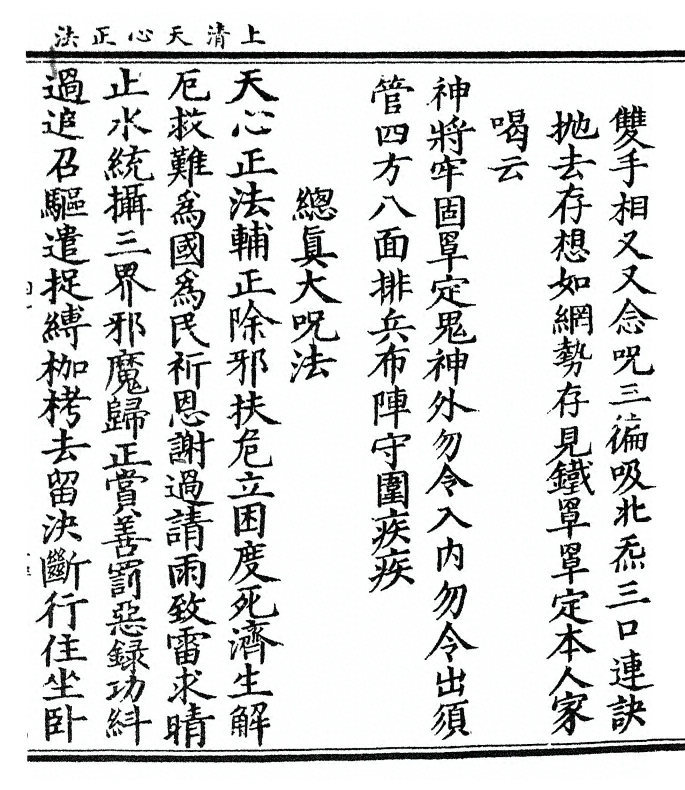 上清天心正法
雙手相叉又念呪三徧吸北炁三口連訣
拋去存想如網勢存見鐵罩罩定本人家
喝云
神將牢固罩定鬼神外勿令入內勿令出須
管四方八面排兵布陣守圍疾疾
總眞大呪法
天心正法輔正除邪扶危立困度死濟生解
厄救難爲國爲民祈恩謝過請雨致雷求晴
止水統攝三界邪魔歸正賞善罰惡錄功糾
過追召驅遣捉縛枷栲去留決斷行住坐卧